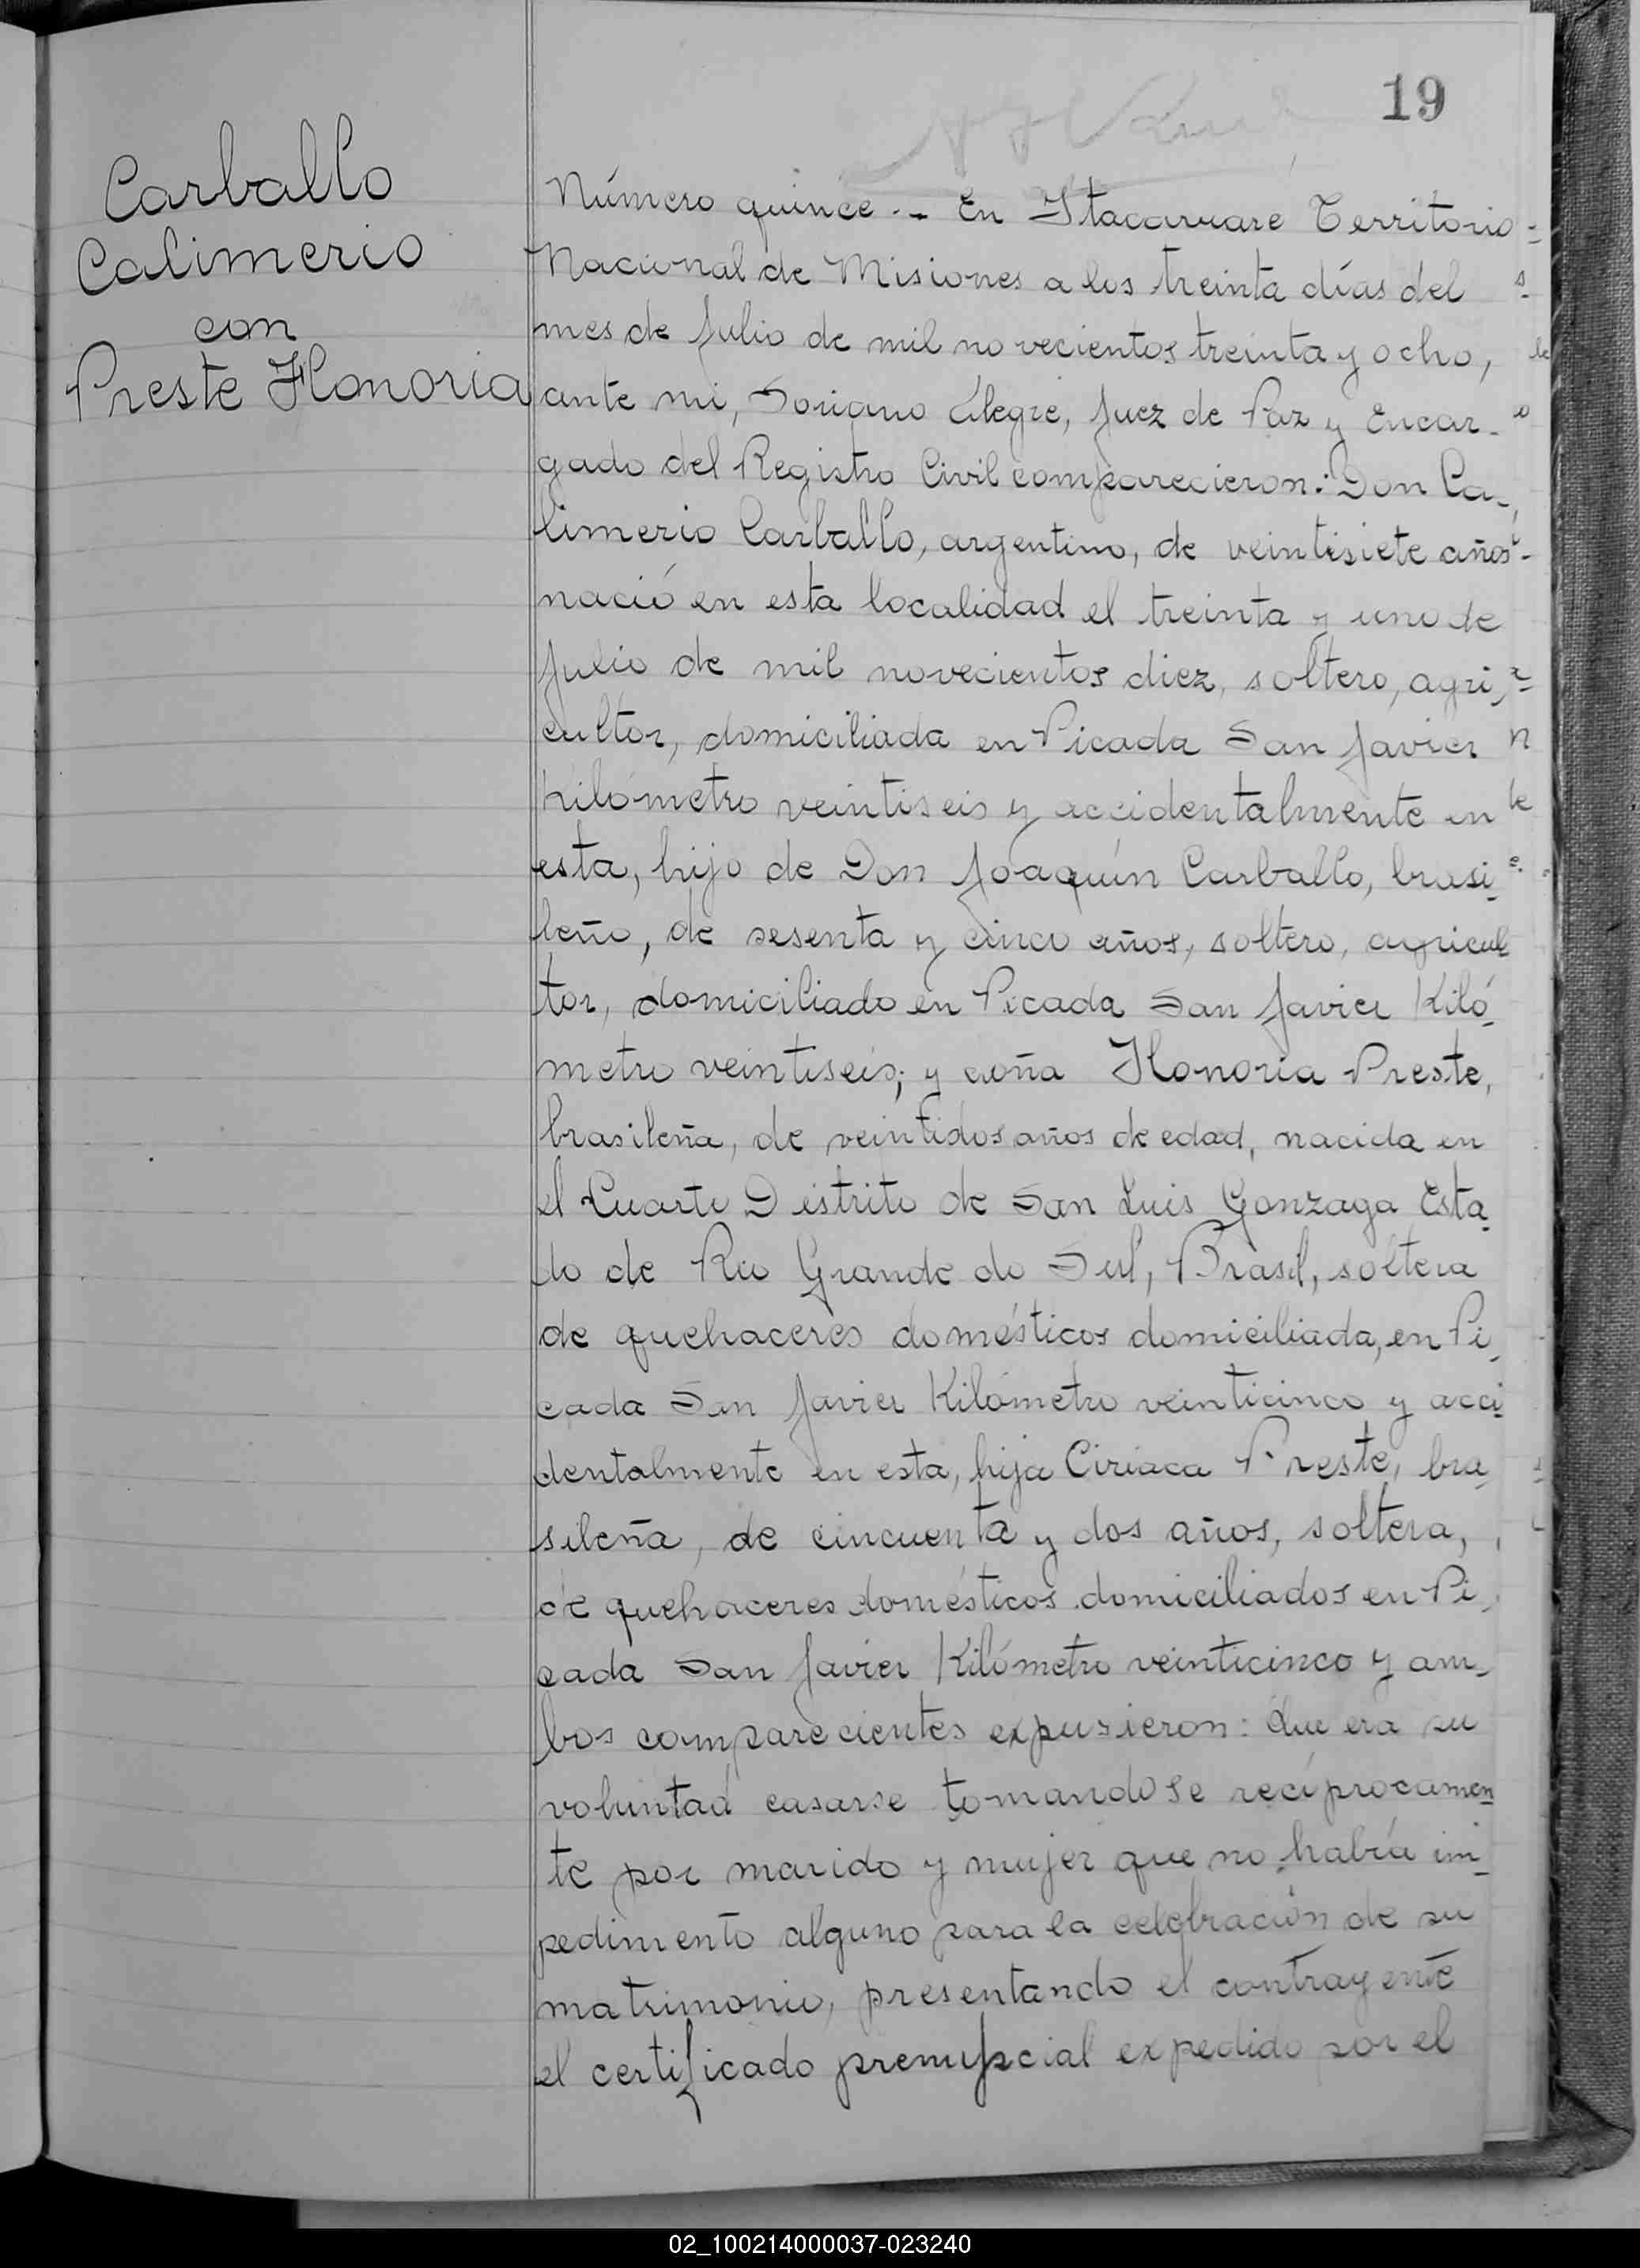 19
Carballo
Calimerio
con
Preste Honoria
Número quince.- En Itacaruaré Territorio
Nacional de Misiones a los treinta días del
mes de Julio de mil novecientos treinta y ocho,
ante mi, Soriano Alegre, Juez de Paz y Encar-
gado del Registro Civil comparecieron: Don Ca-
limerio Carballo, argentino, de veintisiete años
nació en esta localidad el treinta y uno de
Julio de mil novecientos diez, soltero, agri-
cultor, domiciliada en Picada San Javier
Kilómetro veintiseis y accidentalmente en
esta, hijo de Don Joaquín Carballo, brasi-
leño, de sesenta y cinco años, soltero, agricul
tor, domiciliado en Picada San Javier Kiló-
metro veintiseis; y doña Honoria Preste,
brasileña, de veintidos años de edad, nacida en
el Cuarto Distrito de San Luis Gonzaga Esta-
do de Rio Grande do Sul, Brasil, soltera
de quehaceres domésticos domiciliada, en Pi-
cada San Javier Kilómetro veinticinco y acci-
dentalmente en esta, hija Ciriaca Preste, bra-
sileña, de cincuenta y dos años, soltera,
de quehaceres domésticos domiciliados en Pi-
cada San Javier Kilómetro veinticinco y am-
bos comparecientes expusieron: Que era su
voluntad casarse tomandose recíprocamen
te por marido y mujer que no había im-
pedimento alguno para la celebración de su
matrimonio, presentando el contrayente
el certificado prenupcial expedido por el
02_100214000037-023240